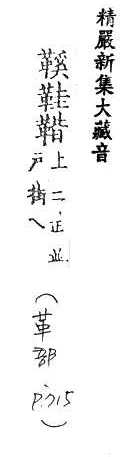 精嚴新集大藏音
䩤鞋鞜
上二正並
戶街乀
（革部
p.715）